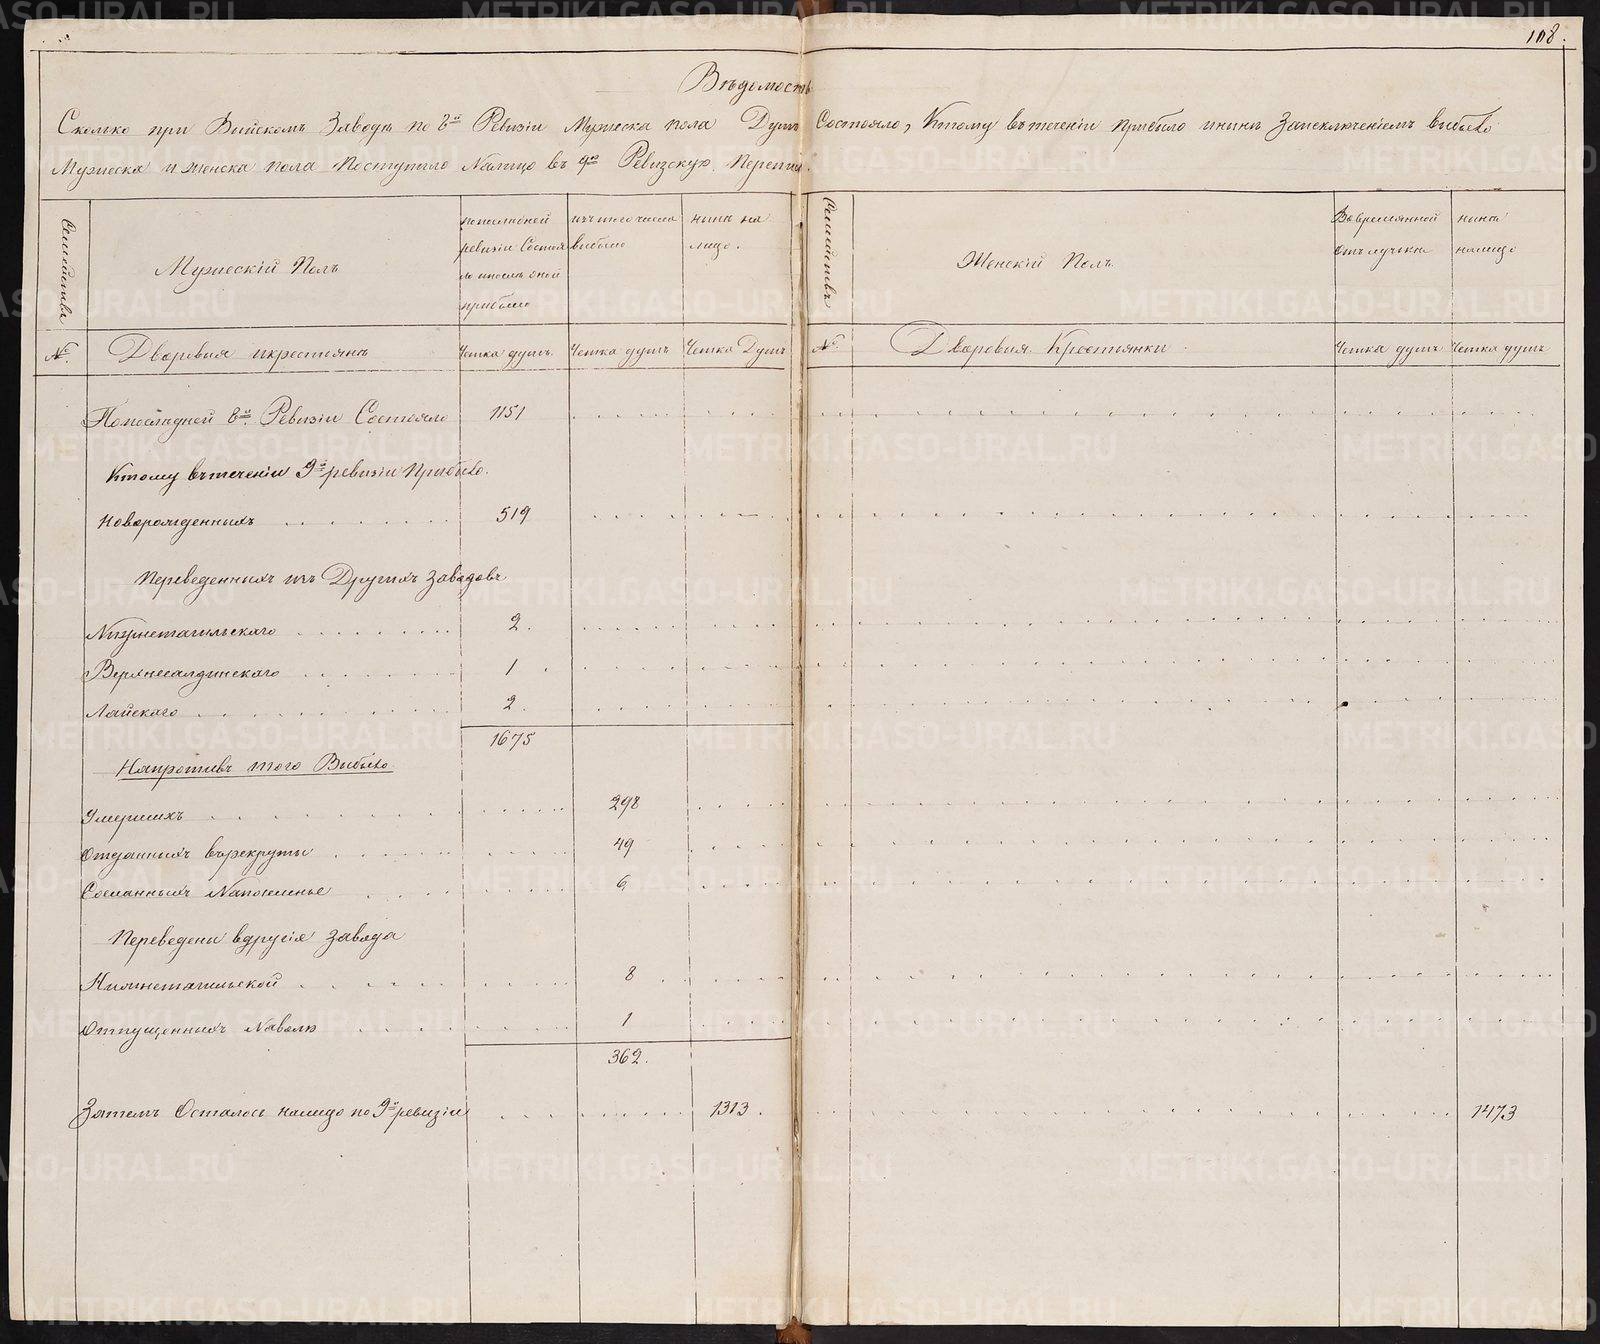 108.
Вѣдомость
Сколько при Выйскомъ Заводѣ по 8й Ревизіи Мужеска пола Душъ Состояло, Ктому втеченіи прибыло инынѣ Заисключеніемъ выбыло
Мужеска и женска пола поступило Налицо въ 9ю Ревизскую Перепись.
Семейства
Мужескій Полъ
попослѣдней
ревизіи Состоя
ло ипослѣ оной
прибыло
изъ того числа
выбыло
нынѣ на
лицо.
Семейства
Женскій Полъ.
Вовременной
отълучкѣ
нынѣ
налицо
№.
Дворовыя икрестьянъ
Четка душъ.
Четка душъ
Четка Душъ
№.
Дворовыя Крестьянки
Четка душъ
Четка душъ
Попослѣдней 8й Ревизіи Состояло 1151
Ктому втеченіи 9й ревизіи Прибыло.
Новорожденныхъ 519
Переведенныхъ изъ Другихъ Заводовъ
Нижнетагильскаго 2.
Верхнесалдинскаго 1.
Лайскаго 2.
1675
Напротивъ того Выбыло
Умершихъ 298
Отданныхъ врекруты 49
Сосланныхъ Напоселенье 6
Переведены вдругія Завода
Нижнетагильской 8
Отпущенныхъ Наволю 1
362.
Затемъ Осталось налицо по 9й ревизіи 1313. 1473
METRIKI.GASO-URAL.RU